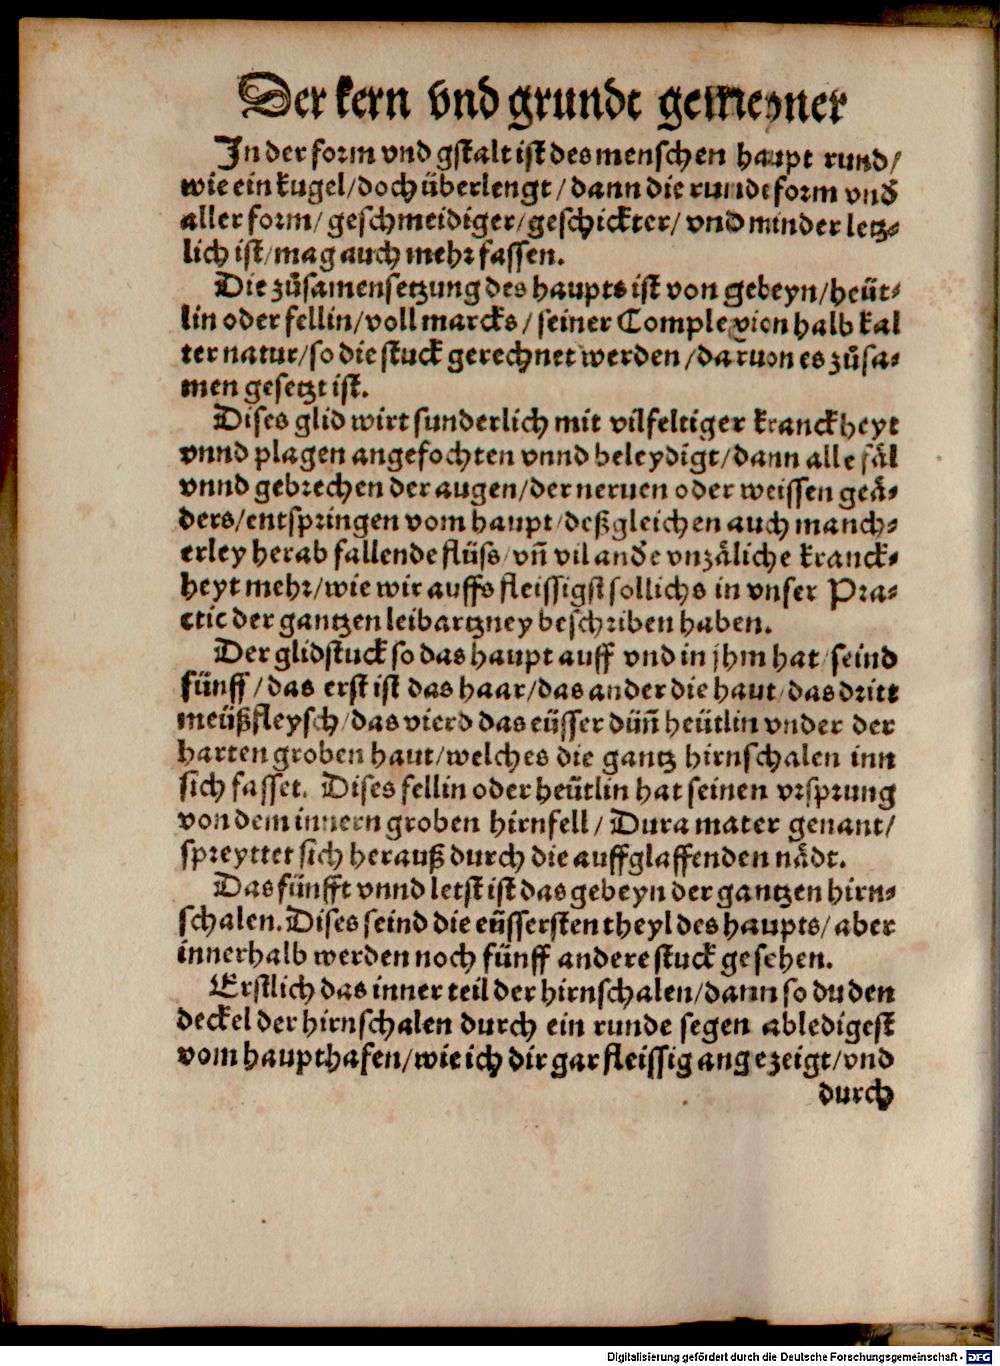 Der kern vnd grundt gemeyner
In der form vnd gstalt ist des menschen haupt rund/
wie ein kugel/doch überlengt/dann die runde form vnd
aller form/geschmeidiger/geschickter/vnd minder letz⸗
lich ist/mag auch mehr fassen.
Die zůsamensetzung des haupts ist von gebeyn/heüt⸗
lin oder fellin/voll marcks/seiner Complexion halb kal
ter natur/so die stuck gerechnet werden/daruon es zůsa⸗
men gesetzt ist.
Dises glid wirt sunderlich mit vilfeltiger kranckheyt
vnnd plagen angefochten vnnd beleydigt/dann alle fäl
vnnd gebrechen der augen/der neruen oder weissen geä⸗
ders/entspringen vom haupt/deßgleichen auch manch⸗
erley herab fallende flüss/vñ vil andė vnzäliche kranck⸗
heyt mehr/wie wir auffs fleissigst sollichs in vnser Pra⸗
ctic der gantzen leibartzney beschriben haben.
Der glidstuck so das haupt auff vnd in jhm hat/seind
fünff/das erst ist das haar/das ander die haut/das dritt
meüßfleysch/das vierd das eüsser düñ heütlin vnder der
harten groben haut/welches die gantz hirnschalen inn
sich fasset. Dises fellin oder heütlin hat seinen vrsprung
von dem innern groben hirnfell/Dura mater genant/
spreyttet sich herauß durch die auffglaffenden nädt.
Das fünfft vnnd letst ist das gebeyn der gantzen hirn⸗
schalen. Dises seind die eüssersten theyl des haupts/aber
innerhalb werden noch fünff andere stuck gesehen.
Erstlich das inner teil der hirnschalen/dann so du den
deckel der hirnschalen durch ein runde segen abledigest
vom haupthafen/wie ich dir gar fleissig angezeigt/vnd
durch
Digitalisierung gefördert durch die Deutsche Forschungsgemeinschaft - DFG